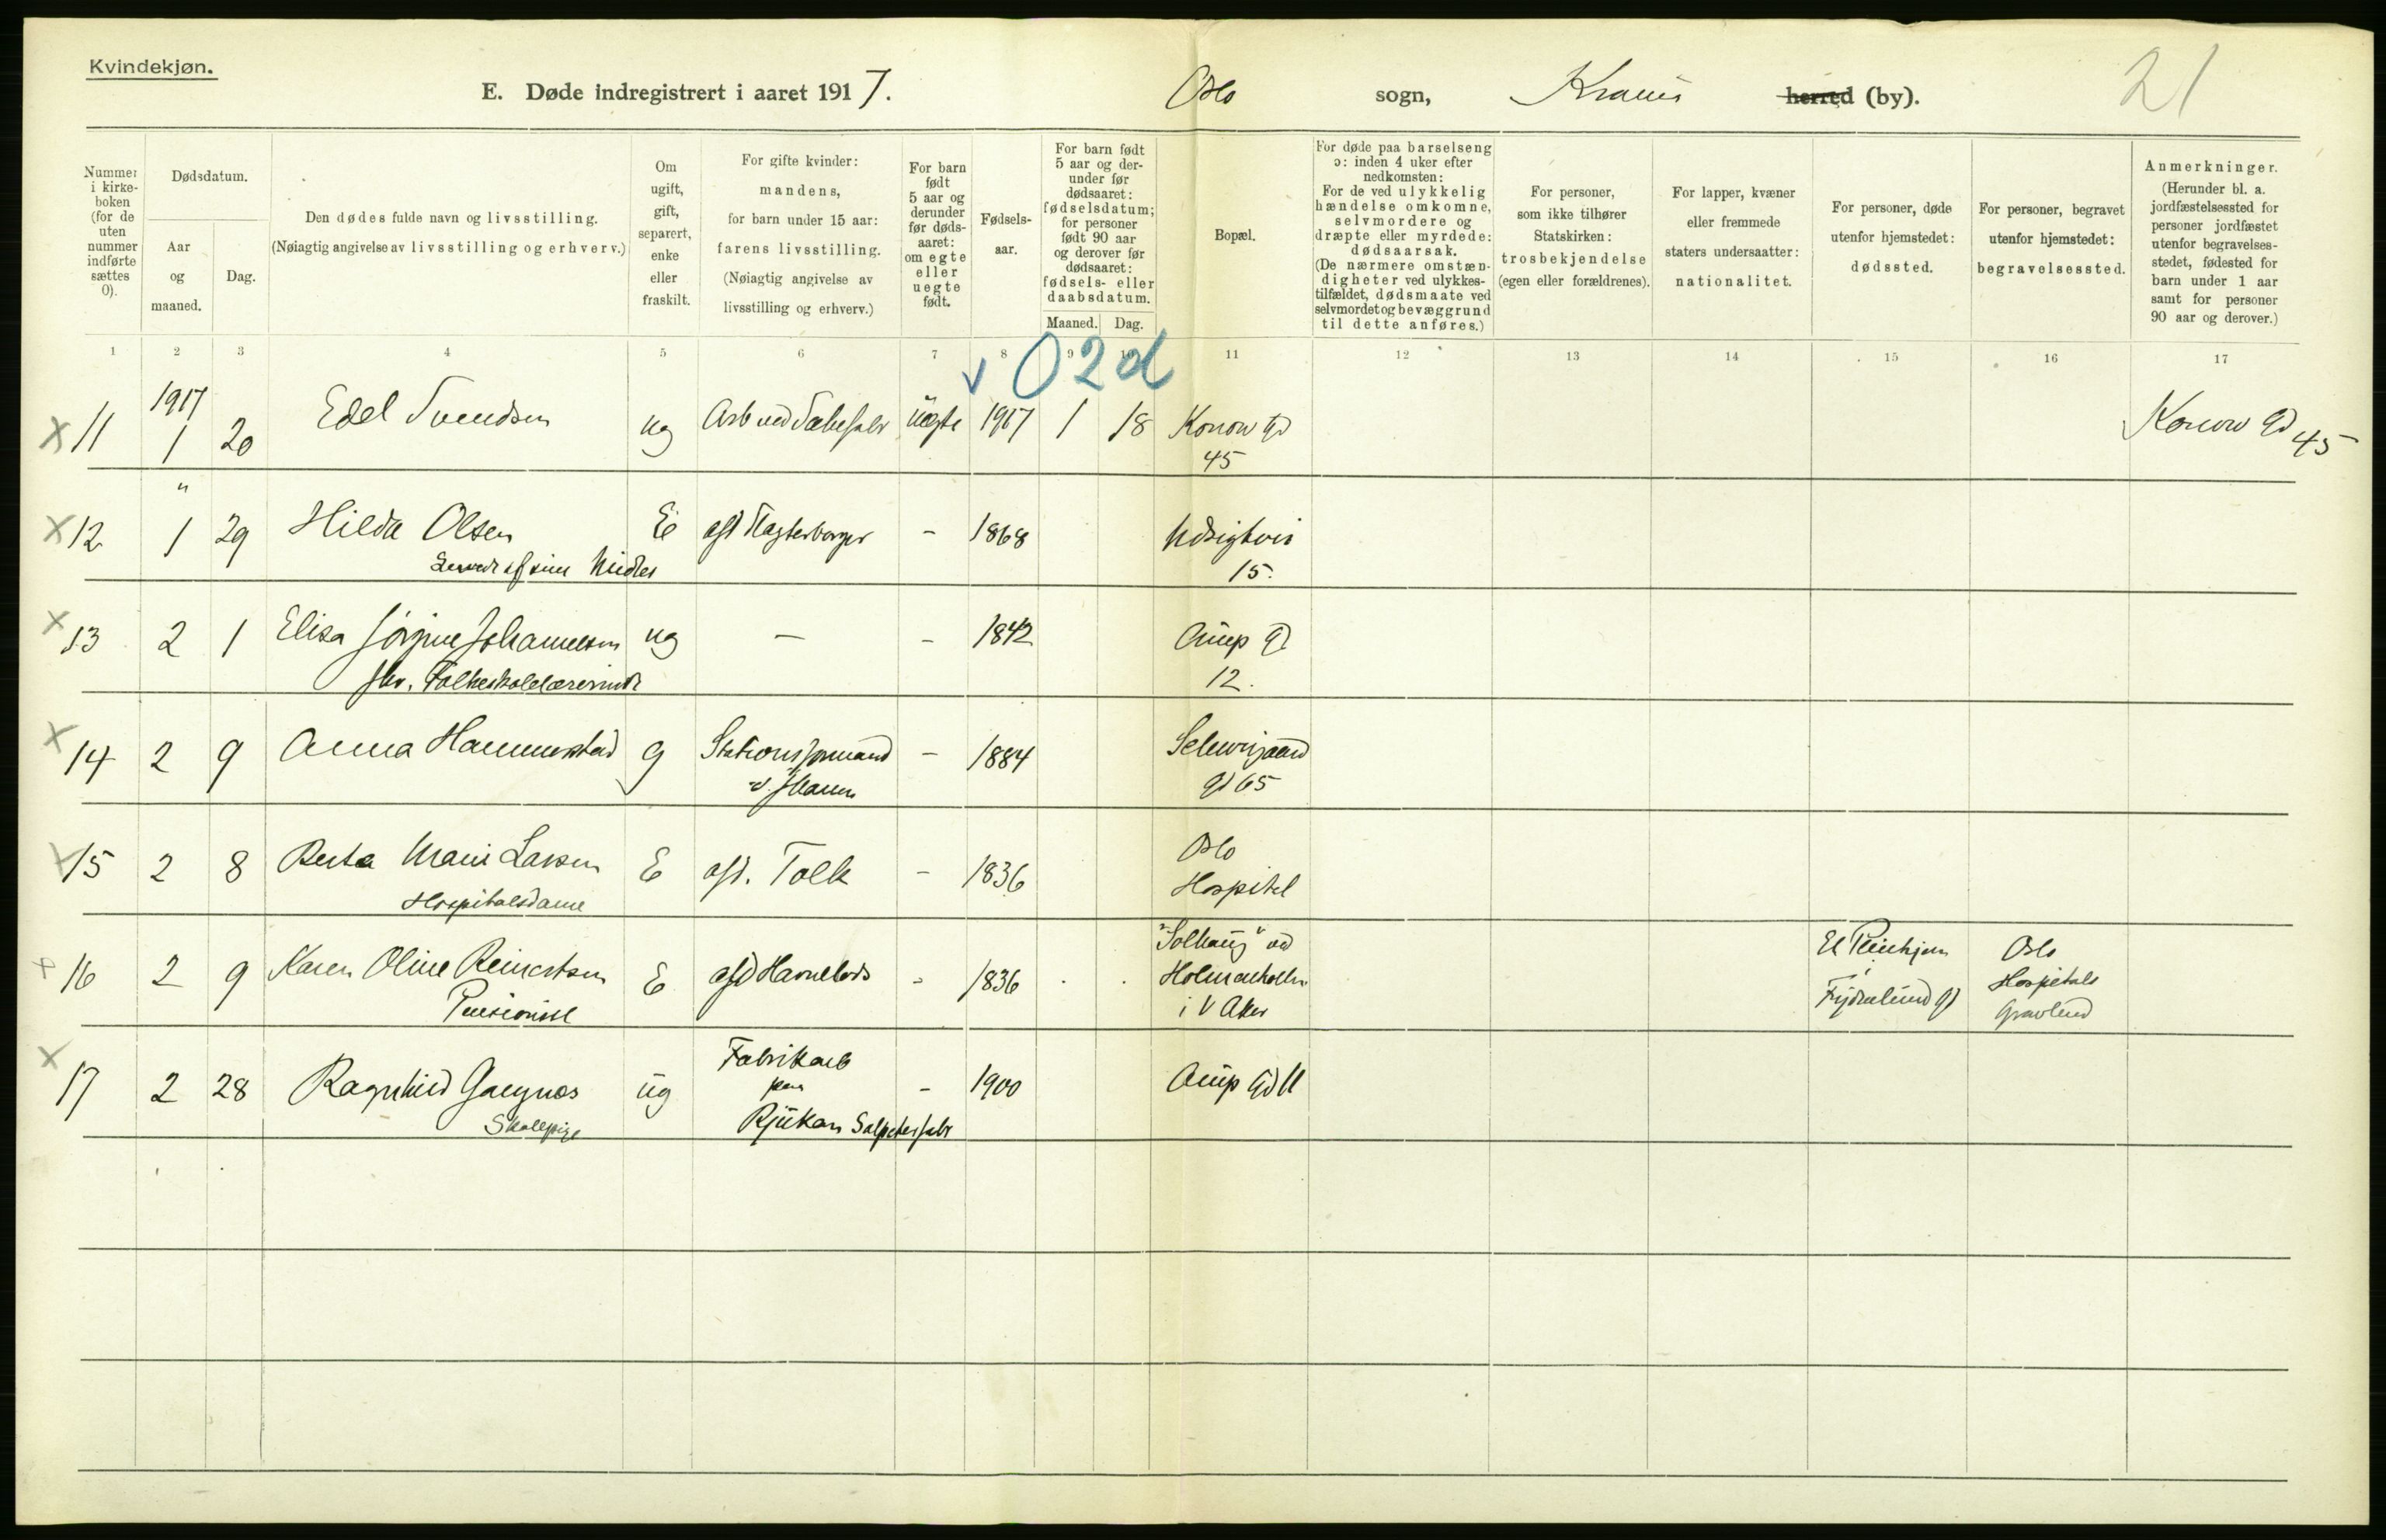 Kvindekjøn.
E. Døde indregistrert i aaret 1917. Oslo sogn, Krania herred (by). 21
Nummer i kirkeboken (for de uten nummer indførte sættes 0).
Dødsdatum.
Aar og maaned.
Dag.
Den dødes fulde navn og livsstilling.
(Nøiagtig angivelse av livsstilling og erhverv.)
Om ugift, gift, separert, enke eller fraskilt.
For gifte kvinder: mandens, for barn under 15 aar: farens livsstilling. (Nøiagtig angivelse av livsstilling og erhverv.)
For barn født 5 aar og derunder før dødsaaret: om egte eller uegte født.
Fødselsaar.
For barn født 5 aar og derunder før dødsaaret: fødselsdatum; for personer født 90 aar og derover før dødsaaret: fødsels- eller daabsdatum.
Maaned. Dag.
Bopæl.
For døde paa barselseng ɔ: inden 4 uker efter nedkomsten: For de ved ulykkelig hændelse omkomne, selvmordere og dræpte eller myrdede: dødsaarsak. (De nærmere omstændigheter ved ulykkestilfældet, dødsmaate ved selvmordet og bevæggrund til dette anføres.)
For personer, som ikke tilhører Statskirken: trosbekjendelse (egen eller forældrenes).
For lapper, kvæner eller fremmede staters undersaatter: nationalitet.
For personer, døde utenfor hjemstedet: dødssted.
For personer, begravet utenfor hjemstedet: begravelsessted.
Anmerkninger. (Herunder bl. a. jordfæstelsessted for personer jordfæstet utenfor begravelsesstedet, fødested for barn under 1 aar samt for personer 90 aar og derover.)
1 2 3 4 5 6 7 8 9 10 11 12 13 14 15 16 17
02d
1917
x 11 1 20 Edel Svendsen ug Arb ved Sæbefabr uegte 1917 1 18 Konow Gd Konow Gd 45
45
"
x 12 1 29 Hilda Olsen E afd - 1868 Udsigtvei
15.
x 13 2 1 Elisa Jörgine Johannesen ug — - 1842 Amp Gd
fhv. Folkeskolelærerinde 12.
x 14 2 9 Anna Hammerstad g Stationsformand - 1884 Schweigaard
Gd 65
x 15 2 8 Berta Marie Larsen E afd. Tolk - 1836 Oslo
Hospitalsdame Hospital
x 16 2 9 Karen Oline Reinertsen E afd Havnelods - 1836 "Solhaug" ved Oslo
Pensionist Holmenkollen Hospitals
i V Aker Gravlund
x 17 2 28 Ragnhild ug Fabrikarb - 1900 Amp Gd 11
paa
Skolepige Rjukan Salpeterfabr